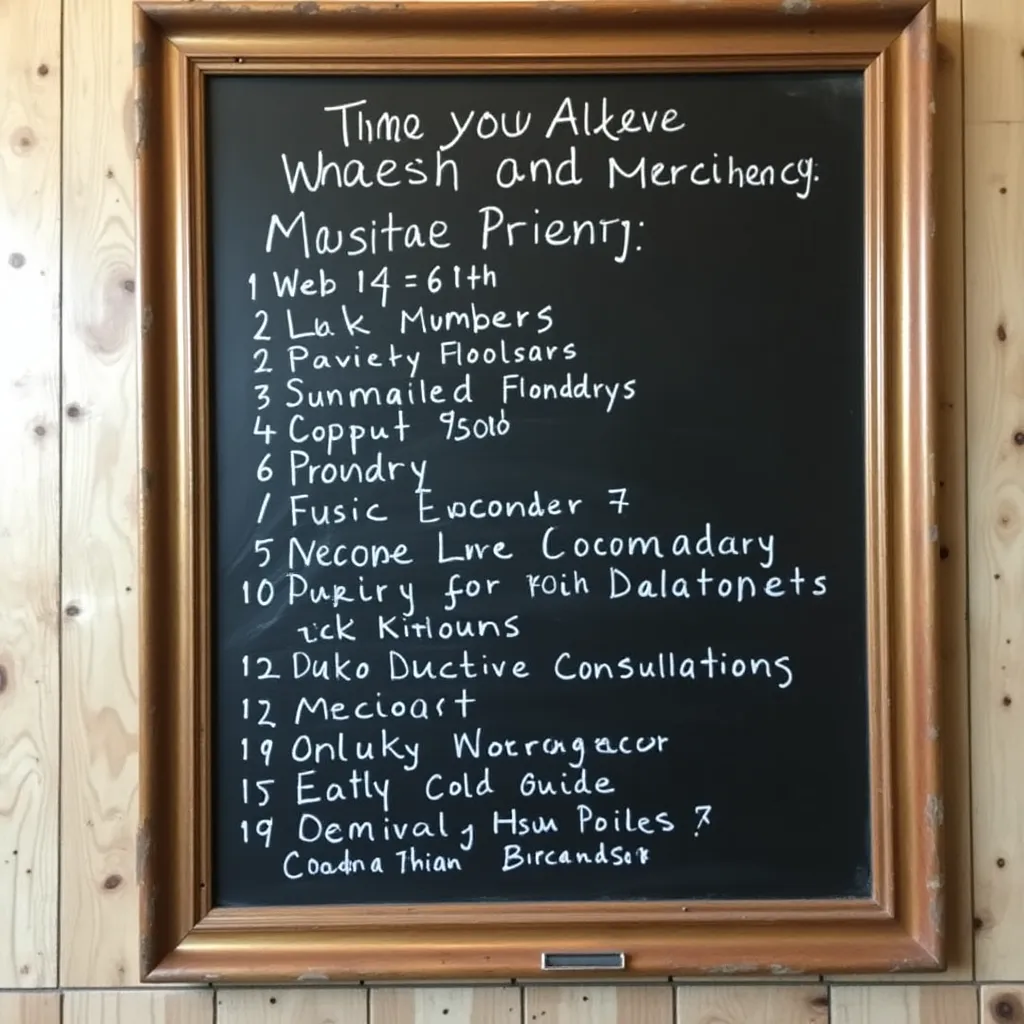 Time you Alkeve
Whaesh and Mercihency.
Masitae Prienty:
1 Web 14 = 61th
2 Lak Mumbers
2 Paviety Floolsars
3 Sunmailed Flonddrys
4 Copput
6 Prondry
/ Fusic Exoconder 7
5 Necone Lnre Cocomadary
10 Pukiry for roih Dalatonets
Kitlouns
12 Duko Ductive Consullations
12 Mecioart
19 Onluky
15 Eatly Cold Guide
19 Demivaly Hsu Poiles ?
Coadna Thian